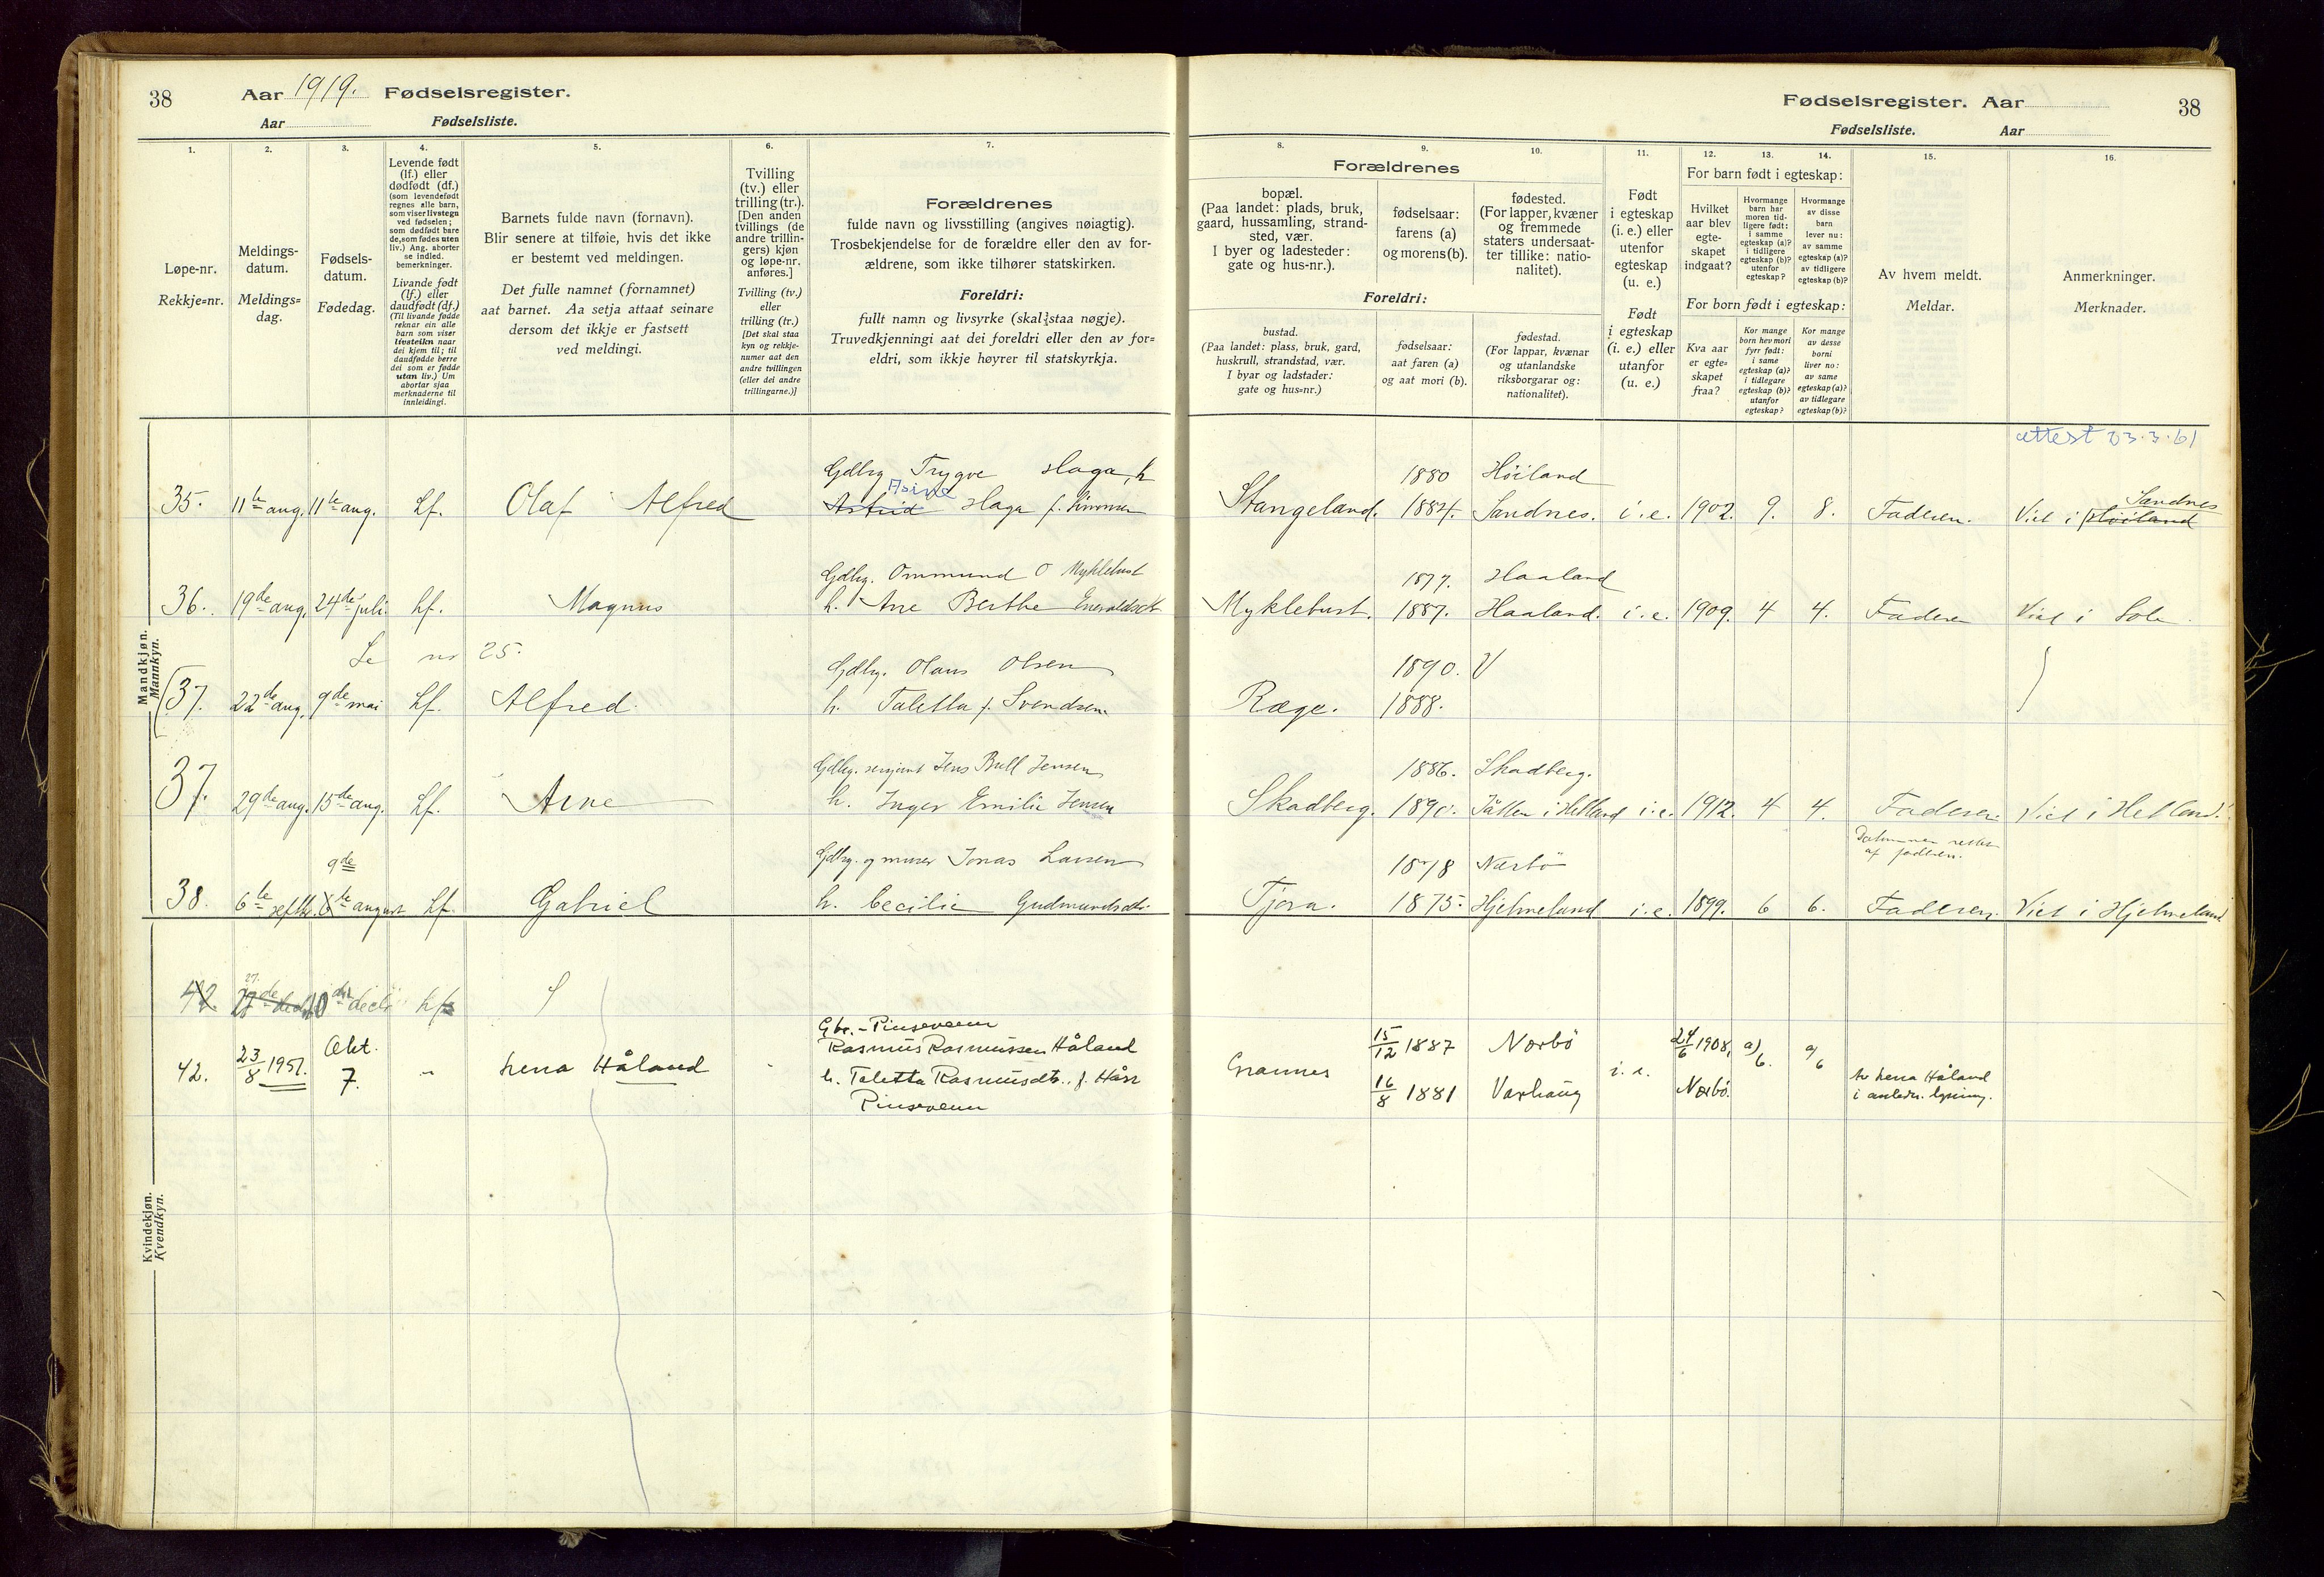 38 Aar 1919. Fødselsregister.
Aar Fødselsliste.
1.
Løpe-nr.
Rekkje=nr.
2.
Meldings-
datum.
Meldings=
dag.
3.
Fødsels-
datum.
Fødedag.
4.
Levende født
(lf.) eller
dødfødt (df.)
(som levendefødt
regnes alle barn,
som viser livstegn
ved fødselen;
som dødfødt bare
de, som fødes uten
liv.) Ang. aborter
se indled.
bemerkninger.
Livande født
(lf.) eller
daudfødt (df.)
(Til livande fødde
reknar ein alle
barn som viser
livsteikn naar
dei kjem til; til
daudfødde berre
dei som er fødde
utan liv.) Um
abortar sjaa
merknaderne til
innleidingi.
5.
Barnets fulde navn (fornavn).
Blir senere at tilføie, hvis det ikke
er bestemt ved meldingen.
Det fulle namnet (fornamnet)
aat barnet. Aa setja attaat seinare
dersom det ikkje er fastsett
ved meldingi.
6.
Tvilling
(tv.) eller
trilling (tr.).
[Den anden
tvillings (de
andre trillin-
gers) kjøn
og løpe-nr.
anføres.]
Tvilling (tv.)
eller
trilling (tr.)
[Det skal staa
kyn og rekkje-
numer aat den
andre tvillingen
(eller dei andre
trillingarne.)]
7.
Forældrenes
fulde navn og livsstilling (angives nøiagtig).
Trosbekjendelse for de forældre eller den av for-
ældrene, som ikke tilhører statskirken.
Foreldri:
fullt namn og livsyrke (skal staa nøgje).
Truvedkjenningi aat dei foreldri eller den av for=
eldri, som ikkje høyrer til statskyrkja.
Fødselsregister. Aar 38
Fødselsliste. Aar
8.
Forældrenes
bopæl.
(Paa landet: plads, bruk,
gaard, hussamling, strand-
sted, vær.
I byer og ladesteder:
gate og hus-nr.).
Foreldri:
bustad.
(Paa landet: plass, bruk, gard,
huskrull, strandstad, vær.
I byar og ladstader:
gate og hus=nr.)
9.
fødselsaar:
farens (a)
og morens (b).
fødselsaar:
aat faren (a)
og aat mori (b).
10.
fødested.
(For lapper, kvæner
og fremmede
staters undersaat-
ter tillike: natio-
nalitet).
fødestad.
(For lappar, kvænar
og utanlandske
riksborgarar og:
nationalitet).
11.
Født
i egteskap
(i. e.) eller
utenfor
egteskap
(u. e.)
Født
i egteskap
(i. e.) eller
utanfor
(u. e.)
12. 13. 14.
For barn født i egteskap:
Hvilket
aar blev
egte-
skapet
indgaat?
Hvormange
barn har
moren tid-
ligere født:
i samme
egteskap (a)?
i tidligere
egteskap (b)?
utenfor
egteskap?
Hvormange
av disse
barn
lever nu:
av samme
egteskap (a)?
av tidligere
egteskap (b)?
For born født i egteskap:
Kva aar
er egte-
skapet
fraa?
Kor mange
born hev mori
fyrr født:
i same
egteskap (a)?
i tidlegare
egteskap (b)?
utanfor
egteskap?
Kor mange
av desse
borni
liver no:
av same
egteskap (a)?
av tidlegare
egteskap (b)?
15.
Av hvem meldt.
Meldar.
16.
Anmerkninger.
Merknader.
Mandkjøn.
Mannkyn.
attest 23.3.61
Gdbrg Trygve Haga, h 1880 Høiland
Asine Sandnes
35. 11te aug. 11te aug. Lf. Olaf Alfred Astrid Haga f. Simonsen Stangeland. 1884. Sandnes. i.e. 1902. 9. 8. Faderen. Viet i Høiland
Gdbrg. Ommund O Myklebust 1877. Haaland
36. 19de aug. 24de juli. Lf. Magnus h. Ane Berthe Myklebust. 1887. Haaland. i.e. 1909. 4 4. Faderen Viet i Sola
Se nr 25.
Gdbrg. Olaus Olsen 1890. V
37. 22de aug. 9de mai Lf. Alfred. h. Taletta f. Svendsen Ræge. 1888.
Gdbrg. sersjant Jens Bull Jensen 1886. Skadberg.
37. 29de aug. 15de aug. Lf. Arne h. Inger Emilie Jensen Skadberg. 1890. Jåtten i Hetland i.e. 1912. 4 4. Faderen. Viet i Hetland.
9de Gdbrg. og murer Jonas Larsen 1878 Nærbø
af faderen.
38. 6te septbr. 6te august Lf. Gabriel h. Cecilie Gudmundsdtr. Tjora. 1875. Hjelmeland i.e. 1899. 6 6. Faderen. Viet i Hjelmeland
Kvindekjøn.
Kvendkyn.
27.
42. 27de dec. 10de decbr Lf.
Gbr. - Pinsevenn
Okt. Rasmus Rasmussen Håland 15/12 1887 Nærbø 24/6 1908, a) 6. a/ 6
42. 23/8 1951. 7. " Lena Håland h. Taletta Rasmusdtr. f. Hårr Grannes 16/8 1881 Varhaug i.e. Nærbø. av Lena Håland
Pinsevenn i anledn. lysning.